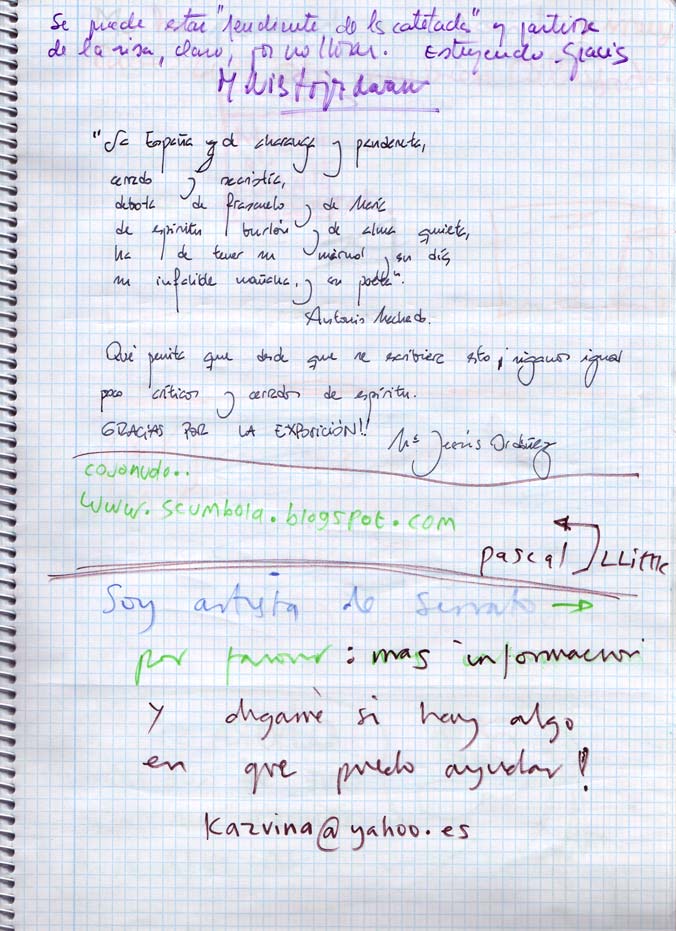 Se puede estar "pendiente de la catetada" y partirse
de la risa, claro, por no llorar. Estupendo. Gracias
"La España de charanga y pandereta,
cerrado y sacristía,
devota de Frascuelo y de María
de espíritu burlón y de alma quieta,
ha de tener su mármol y su día
su infalible mañana, y su poeta".
Antonio Machado.
Qué penita que desde que se escribiera esto, sigamos igual
poco críticos y cerrados de espíritu.
GRACIAS POR LA EXPOSICIÓN!!
Mª Jesús Ordóñez
cojonudo..
www.scumbola.blogspot.com
pascal LLittle
Soy artista de Serrato →
por favor: mas informacion
Y digame si hay algo
en que puedo ayudar!
kazvina@yahoo.es